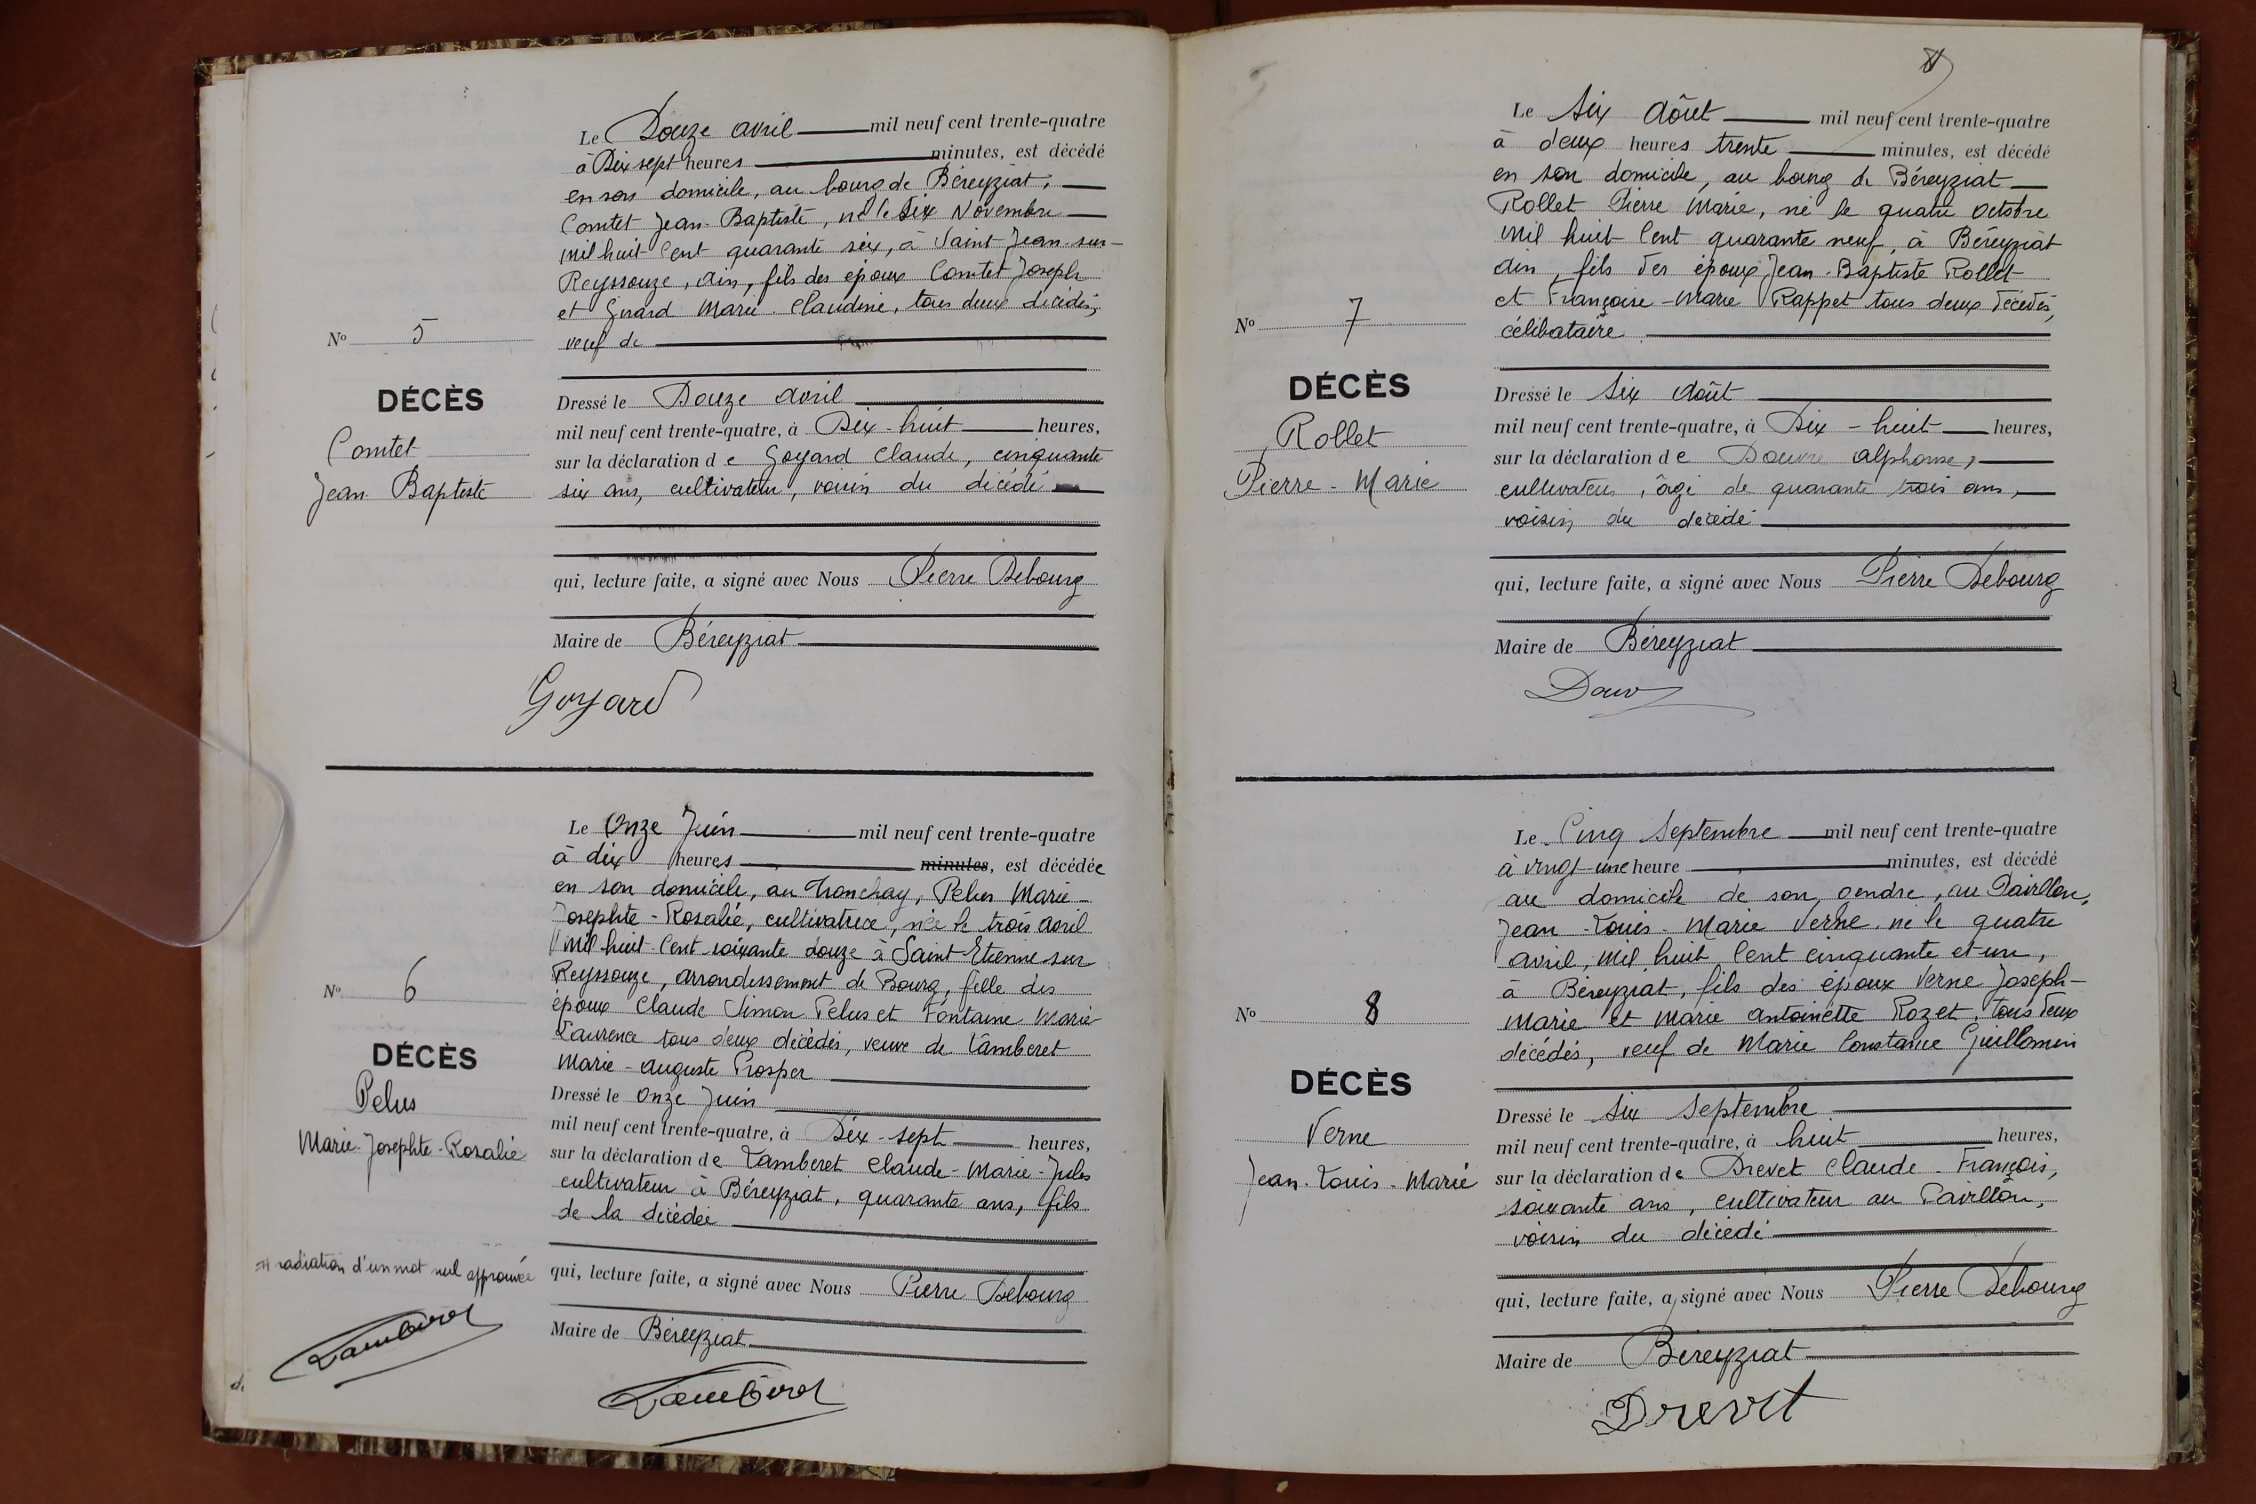 Le Douze avril mil neuf cent trente-quatre
à Dix sept heures minutes, est décédé
en son domicile, au bourg de Béreyziat,
Comtet Jean-Baptiste, né le Six Novembre
mil huit cent quarante six, à Saint-Jean-sur-
Reyssouze, Ain, fils des époux Comtet Joseph
et Girard Marie-Claudine, tous deux décédés,
veuf de
No 5
DÉCÈS
Comtet
Jean Baptiste
Dressé le Douze avril
mil neuf cent trente-quatre, à Dix-huit heures,
sur la déclaration de Goyard Claude, cinquante
six ans, cultivateur, voisin du décédé
qui, lecture faite, a signé avec Nous Pierre Debourg
Maire de Béreyziat
Goyard
Le Onze Juin mil neuf cent trente-quatre
à dix heures minutes, est décédée
en son domicile, au Tronchay, Pelus Marie-
Josephte-Rosalie, cultivatrice, née le trois avril
mil huit cent soixante douze à Saint-Etienne sur
Reyssouze, arrondissement de Bourg, fille des
époux Claude Simon Pelus et Fontaine Marie
Laurence tous deux décédés, veuve de Lamberet
Marie-Auguste Prosper
No 6
DÉCÈS
Pelus
Marie-Josephte-Rosalie
Dressé le Onze Juin
mil neuf cent trente-quatre, à Dix-sept heures,
sur la déclaration de Lamberet Claude-Marie-Jules
cultivateur à Béreyziat, quarante ans, fils
de la décédée
radiation d'un mot nul approuvée
Lamberet
qui, lecture faite, a signé avec Nous Pierre Debourg
Maire de Béreyziat
Lamberet
8
Le Six Août mil neuf cent trente-quatre
à deux heures trente minutes, est décédé
en son domicile, au bourg de Béreyziat
Rollet Pierre Marie, né le quatre octobre
mil huit cent quarante neuf, à Béreyziat
Ain, fils des époux Jean-Baptiste Rollet
et Françoise-Marie Rappet tous deux décédés,
célibataire
No 7
DÉCÈS
Rollet
Pierre-Marie
Dressé le six Août
mil neuf cent trente-quatre, à Dix-huit heures,
sur la déclaration de Douvre Alphonse,
cultivateur, âgé de quarante trois ans,
voisin du décédé
qui, lecture faite, a signé avec Nous Pierre Debourg
Maire de Béreyziat
Le Cinq Septembre mil neuf cent trente-quatre
à vingt-une heure minutes, est décédé
au domicile de son gendre, au Pavillon,
Jean-Louis-Marie Verne, né le quatre
avril, mil huit cent cinquante et un,
à Béreyziat, fils des époux Verne Joseph-
Marie et Marie Antoinette Rozet, tous deux
décédés, veuf de Marie Constance Guillomin
No 8
DÉCÈS
Verne
Jean-Louis-Marie
Dressé le six Septembre
mil neuf cent trente-quatre, à huit heures,
sur la déclaration de Drevet Claude-François,
soixante ans, cultivateur au Pavillon,
voisin du décédé
qui, lecture faite, a signé avec Nous Pierre Debourg
Maire de Béreyziat
Drevet